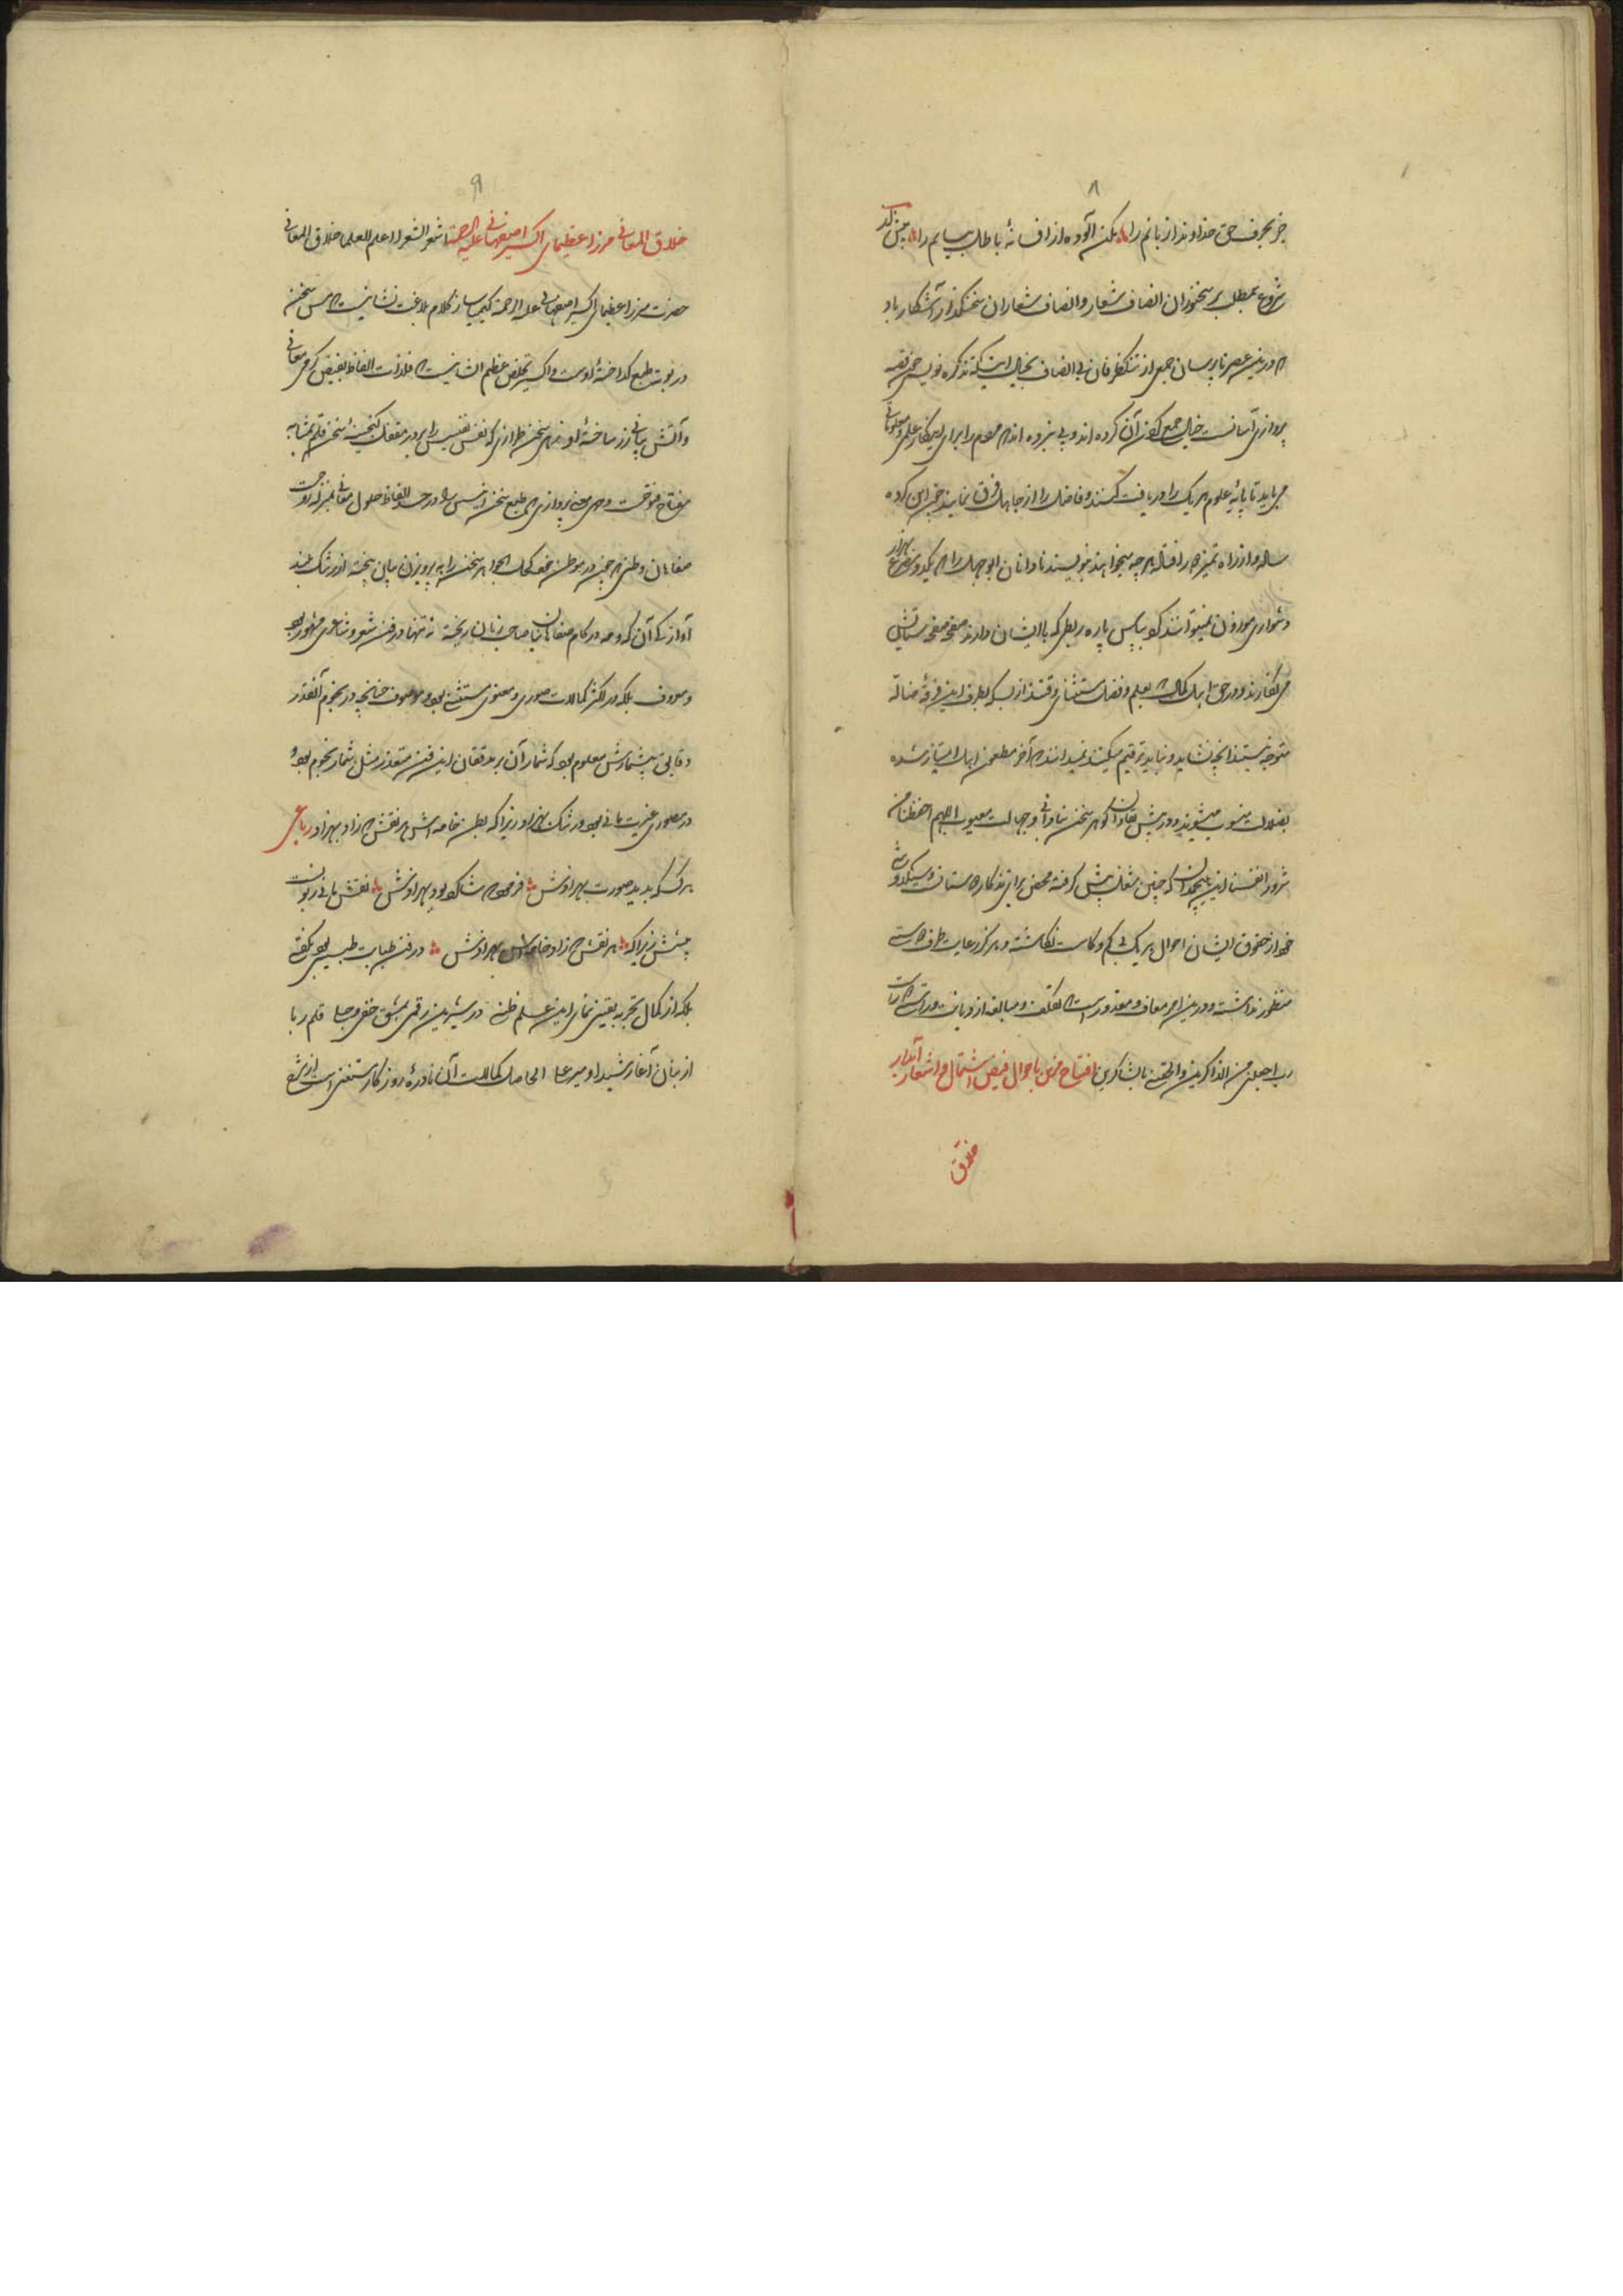 ۸
جز بحرف حق خداوندا زبانم را مکن آلوده از افسانهٔ باطل بیانم را پیش از
شروع بمطلب بر سخنوران انصاف شعار و انصاف شعاران سخنگذار آشکار باد
که درین عصر نابرسان جمعی از تنک ظرفان بی انصاف بخیال اینکه تذکره نویسی
پردازی آسانست خیال جمع کردن آن کرده اند و پی نبرده اند که مردم را برای اینکار علم و معلوماتی
می باید تا پایهٔ علوم هر یک را دریافت کنند و فاضل را از جاهل فرق نمایند
و از راه تمیز هر چه میخواهند بنویسند نادانان ابوجهل را که یکدو مصرع بهزار
دشواری موزون نمیتوانند کرد بپاس پاره ربطی که با ایشان دارند صفحه صفحه ستایش
می نگارند و در حق اهل کمال که بعلم و فضل مستثنای وقتند از بسکه بطرف این فرقهٔ ضاله
متوجه نیستند آنچه نشاید و نباید ترقیم میکنند نمیدانند که آخر مطعون اهل امتیاز شده
بضلالت منسوب میشوند و در پیش قدردانان گوهر سخن بنادانی و جهالت معیوب اللهم احفظنا من
شرور انفسنا این هیچمدان که چنین شغل پیش گرفته محض برای تذکار دوستان
خود از حقوق ایشان احوال هر یک بی کم و کاست نگاشته و هرگز رعایت طرف دوستی
منظور نداشته و درین امر معاف و معذور است که تکلف و مبالغه از دیانت و راستی دور است
رب اجعلنی من الذاکرین و الحقنی بالشاکرین افتتاح سخن باحوال فیض اشتمال و اشعار آبدار
خلاق
۹
خلاق المعانی مرزا عظیمای اکسیر اصفهانی علیه الرحمة اشعر الشعرا اعلم العلما خلاق المعانی
حضرت مرزا عظیمای اکسیر اصفهانی علیه الرحمة کیمیاساز کلام بلاغت نشانیست که مس سخن
در بوتهٔ طبع گداختهٔ اوست و اکسیر تخلص عظیم الشانیست که فلزات الفاظ بفیض گرمی معانی
و آتش بیانی زر ساختهٔ او زهی سخن طرازی که نفس نفیسش را بر در مقفل گنجینهٔ سخن قلم بمثابه
مفتاح فتوحست و خهی معنی پردازی که طبع سخن رسش را در جسد الفاظ حلول معانی بمنزله روحست
صفاهان وطنی که چون در موطن خود کحل الجواهر سخن را به پرویزن بیان بیخته از رشک بلند
آوازگی آن گرد سرمه در کام صفاهانیان صاحب زبان ریخته نه تنها در فن شعر و شاعری مشهور بود
و معروف بلکه در اکثر کمالات صوری و معنوی مستثنی بود و موصوف چنانچه در نجوم آنقدر
دقایق بیشمارش معلوم بود که شمار آن بر دقیقان این فن متعذر مثل شمار نجوم بود و
در مصوری غیرت مانی بود و رشک بهزاد زیرا که بطن خامه اش هر نقش که زاد بهزاد رباعی
هر کس که بدید صورت بهزادش فرمود که شاگرد بود بهزادش نقش مانی ربود
پیشش زیراکه هر نقش که زاد خامه اش بهزادش در فن طبابت طبیبی بود یگانه
بلکه از کمال تجربه یقینی نمای این علم ظنی در شیرین رقمی بمشق خفی و جلی قلم ربا
از بنان آغا رشید او میر علی الحاصل کمالات آن نادرهٔ روزگار مستغنی است از شرح